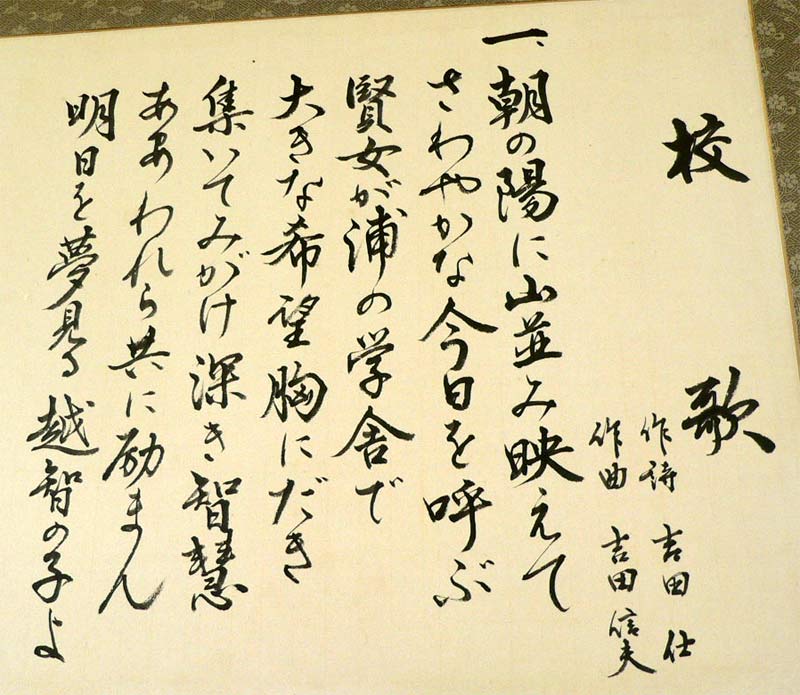 校歌
作詩 吉田 仕
作曲 吉田 信夫
一、朝の陽に山並み映えて
さわやかな今日を呼ぶ
賢女が浦の学舎で
大きな希望胸にだき
集いてみがけ深き智慧
ああわれら共に励まん
明日を夢見る越智の子よ